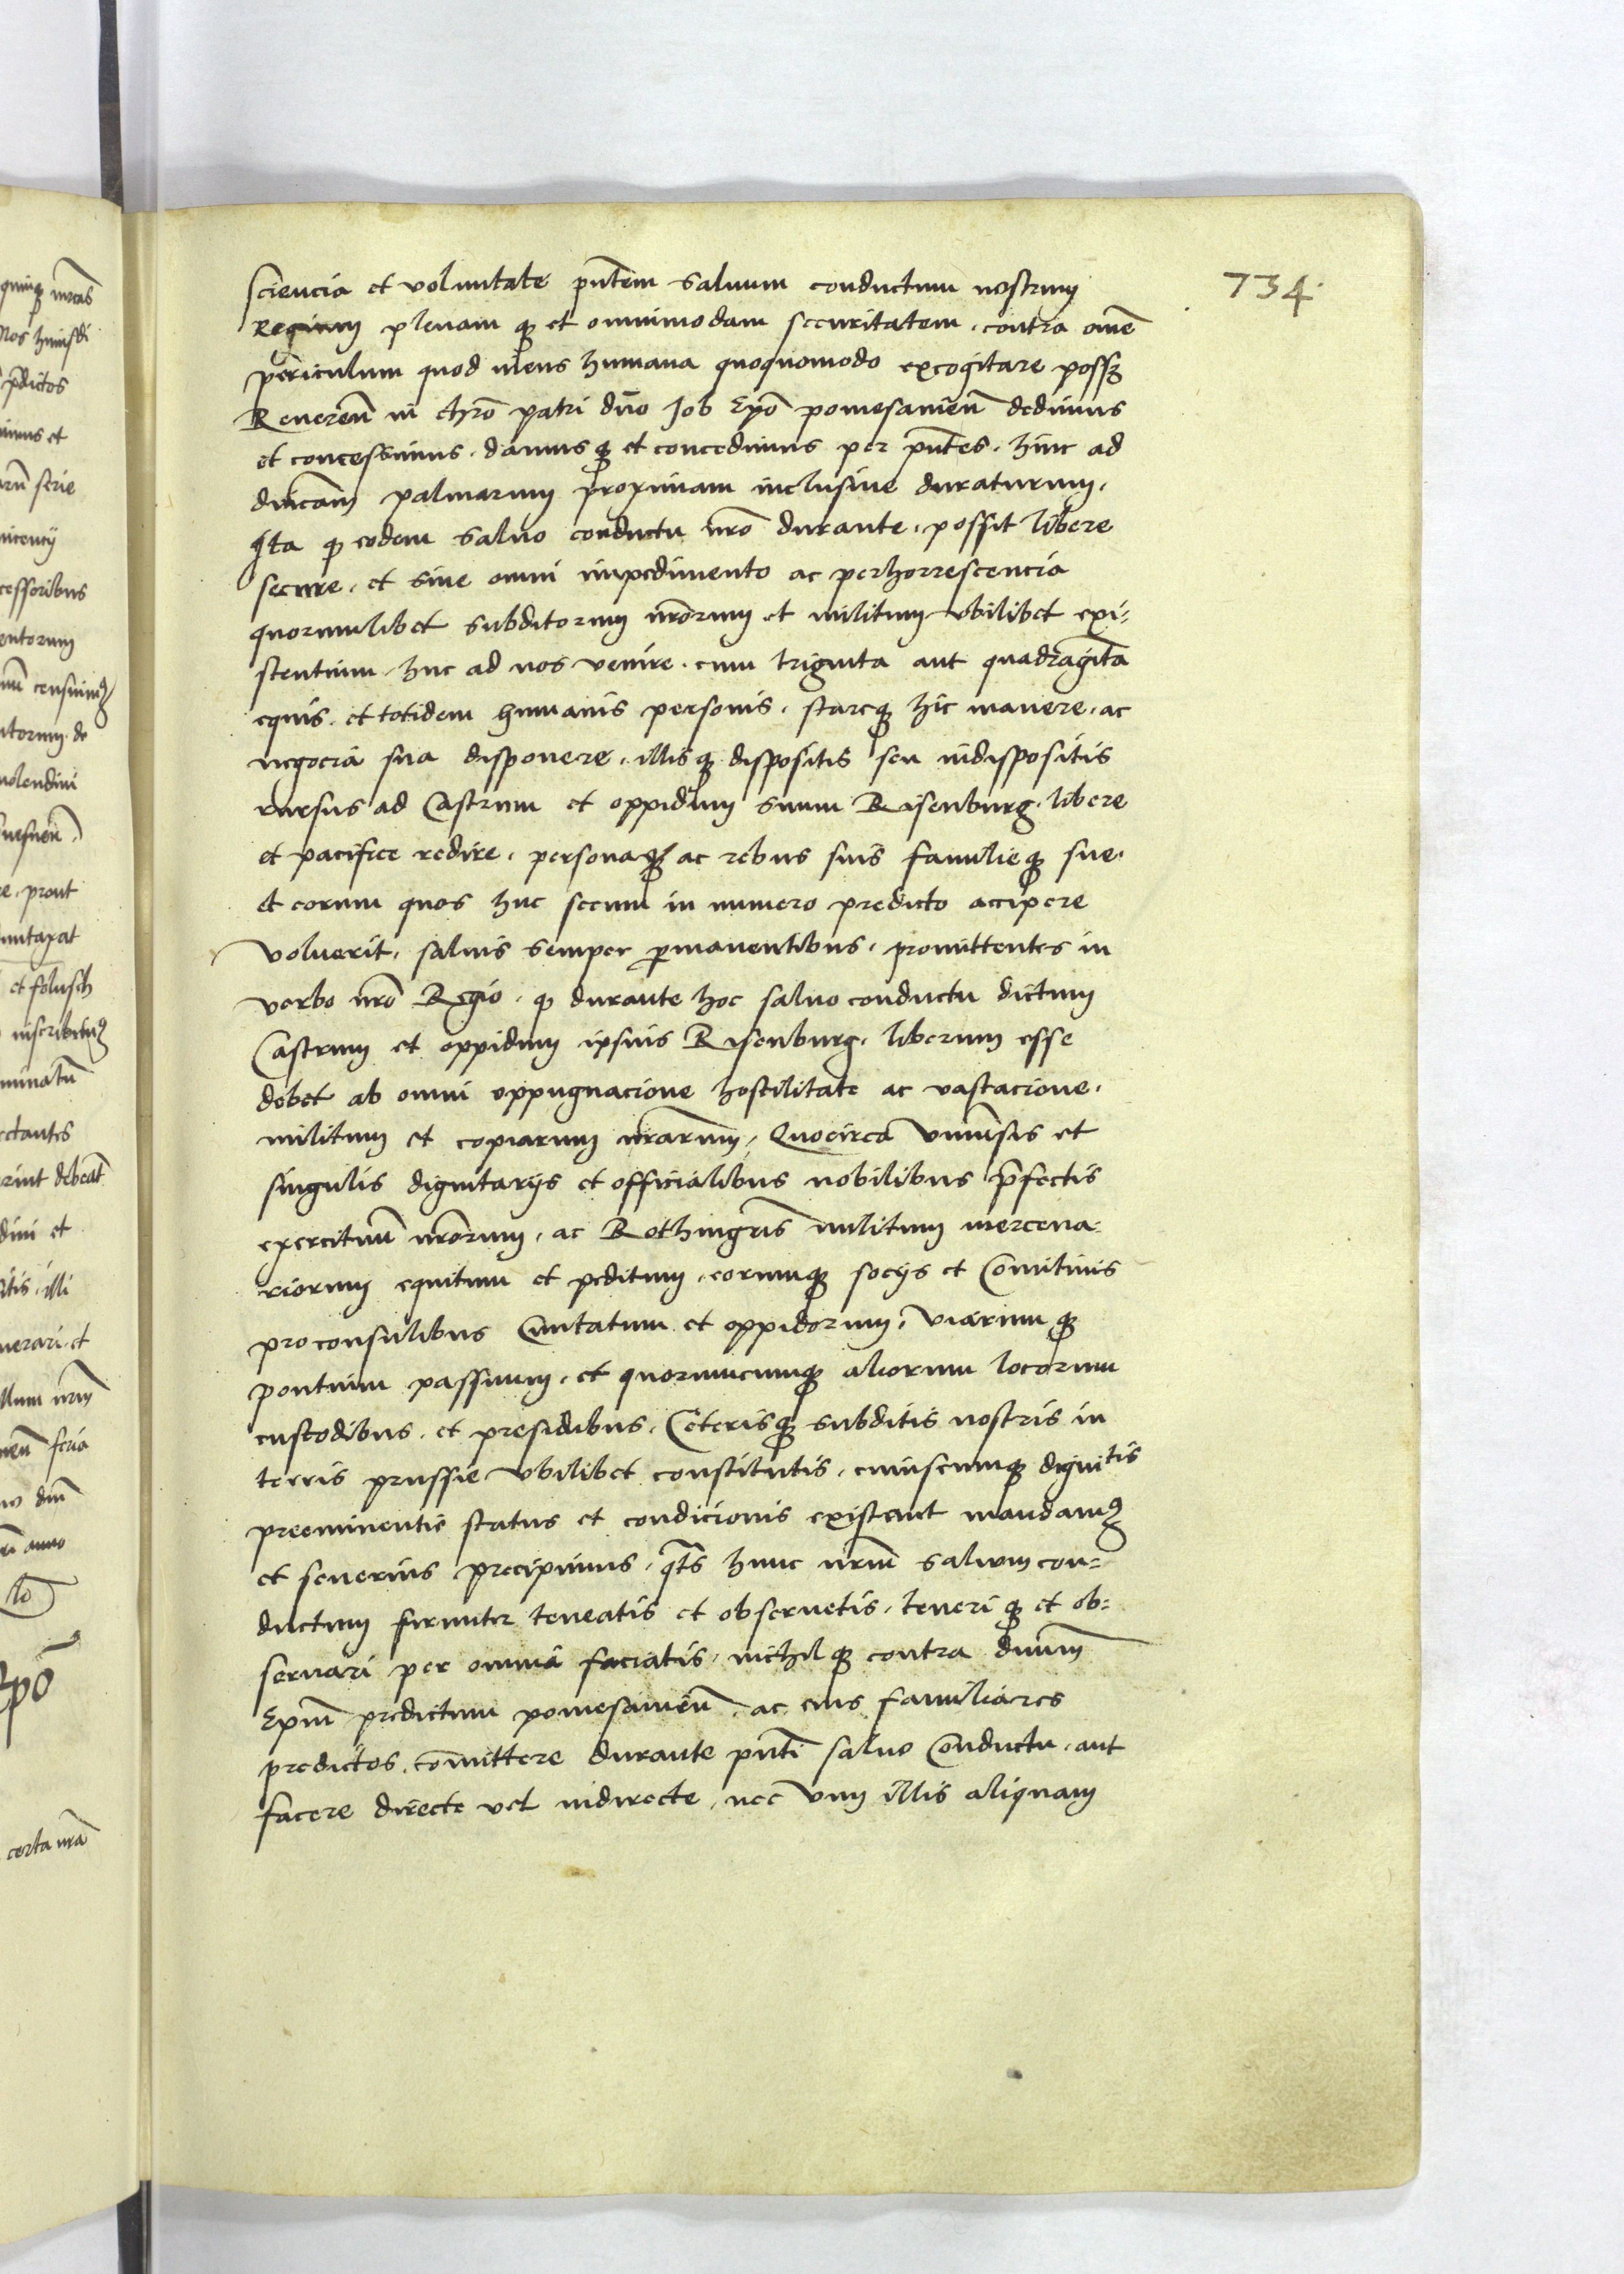 734
sciencia et voluntate pñtem saluum conductum nostrum
Regium plenam q₃ et omnimodam securitatem, contra omẽ
periculum quod mens humana quoquomodo excogitare poss₃
Reuereñ in chr̃o patri dño Job Ep̃o pomesanieñ dedimus
et concessimus, damusq₃ et concedimus per pñtes, hinc ad
dñicam palmarum proximam inclusiue duraturum,
Ita q₃ eodem saluo conductu nr̃o durante, possit libere
secure, et sine omni impedimento ac perhorrescencia
quorumlibet subditorum nr̃orum et militum vbilibet exi=
stentium, huc ad nos venire, cum triginta aut quadraginta
equis, et totidem humanis personis, stareq₃ hic manere, ac
negocia sua disponere, illisq₃ dispositis seu indispositis
rursus ad Castrum et oppidum suum Risenburg, libere
et pacifice redire, personaq₃ ac rebus suis familieq₃ sue,
et eorum quos huc secum in numero predicto accipere
voluerit, saluis semper p̱manentibus, promittentes in
verbo nr̃o Regio, q₃ durante hoc saluo conductu dictum
Castrum et oppidum ipsius Risenburg, liberum esse
debet ab omni oppugnacione hostilitate ac vastacione,
militum et copiarum nr̃arum, Quocirca vniũsis et
singulis dignitarijs et officialibus nobilibus p̃fectis
exercituũ nr̃orum, ac Rothmagr̃is militum mercena=
riorum equitum et peditum, eorumq₃ socijs et Comitiuis
proconsulibus Ciuitatum et oppidorum, viarum q₃
pontium passuum, et quorumcumq₃ aliorum locorum
custodibus, et presidibus, Ceterisq₃ subditis nostris in
terris prussie vbilibet constitutis, cuiuscumq₃ dignitis
preeminentie status et condicionis existant mandam₉
et seuerius precipimus, q̃ts hunc nr̃um saluum con=
ductum firmiter teneatis et obseruetis, teneri q₃ et ob=
seruari per omnia faciatis, nichilq₃ contra dnũm
Ep̃m predictum pomesanieñ, ac eius familiares
predictos, com̃ittere durante pñti saluo Conductu, aut
facere directe vel indirecte, nec vim illis aliquam